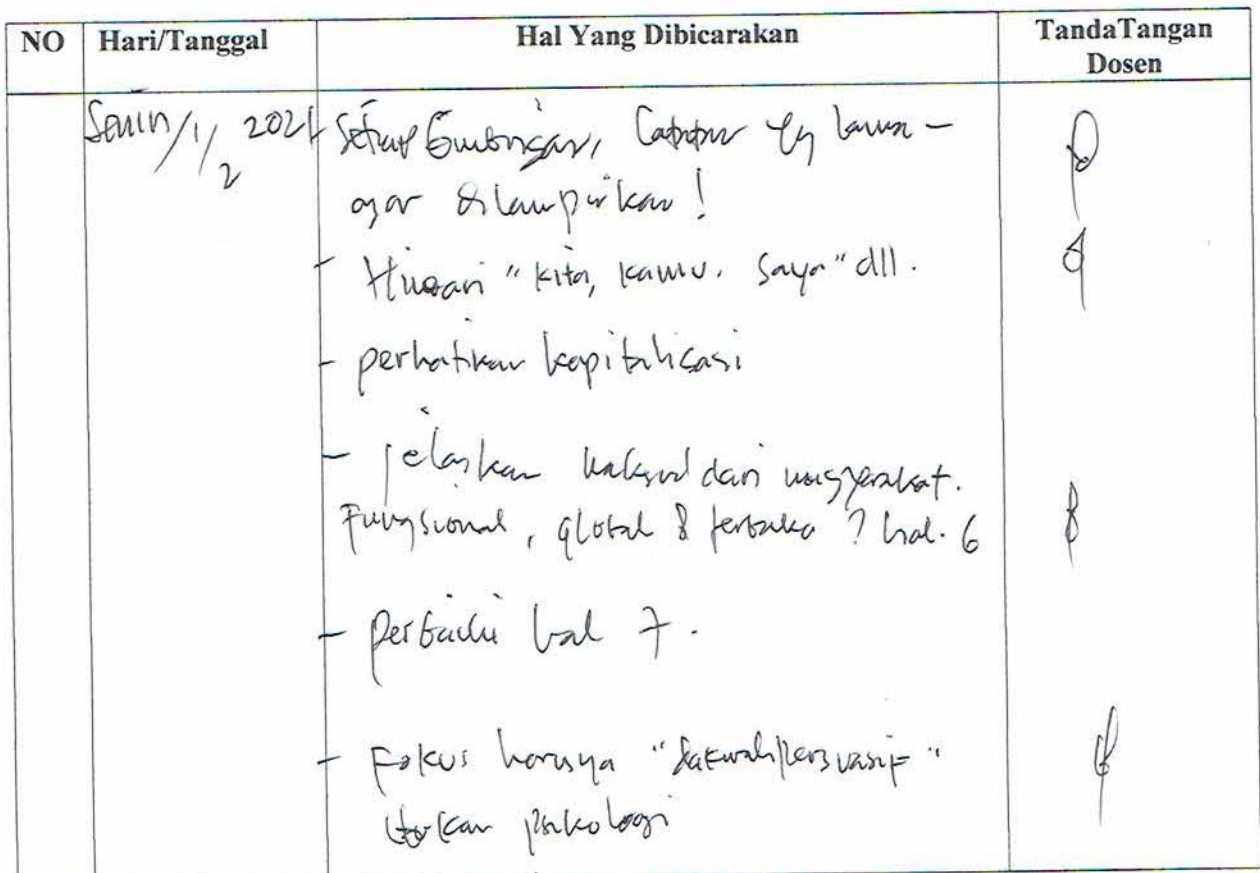 NO Hari/Tanggal Hal Yang Dibicarakan TandaTangan
Dosen
Senin, 1/2 2021 Setiap bimbingan, Catatan yg lama -
agar dilampirkan!
- Hindari "kita, kamu. saya" dll.
- perhatikan kapitalisasi
- jelaskan maksud dari masyarakat.
Fungsional, global & terbuka? hal. 6
- perbaiki hal 7.
- Fokus harusnya "dakwah persuasif"
bukan psikologi